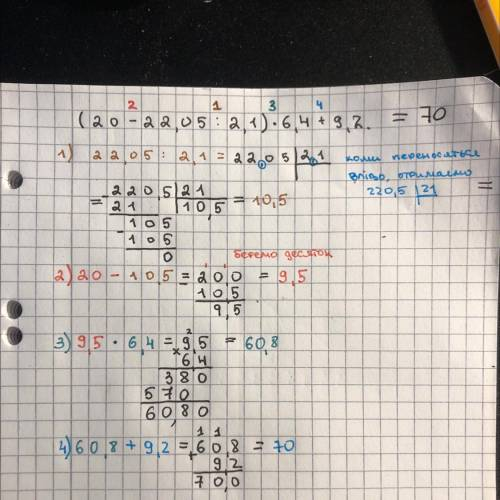 2 1 3 4
(20 - 22,05 : 2,1) · 6,4 + 9,2. = 70
1) 22 05 : 2,1 = 22 05 | 2 1 коми переносяться
вліво, отримаємо
220,5 | 21 =
= - 220,5 | 21
21 | 10,5 = 10,5
- 105
105
0
беремо десяток
2) 20 - 10,5 = - 20,0 = 9,5
10,5
9,5
3) 9,5 · 6,4 = × 9,5 = 60,8
2
64
380
570
60,80
4) 60,8 + 9,2 = + 60,8 = 70
1 1
9,2
70,0